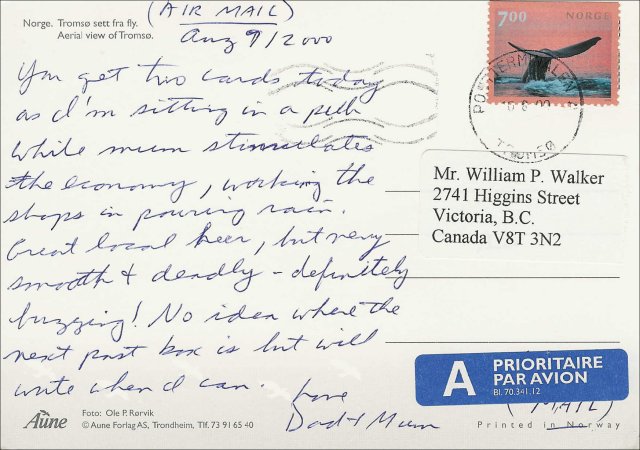 Norge. Tromsø sett fra fly.
Aerial view of Tromsø.
(AIR MAIL)
Aug 9/2000
You get two cards today
as I'm sitting in a pub
while mum stimulates
the economy, working the
shops in pouring rain.
Great local beer, but very
smooth & deadly - definitely
buzzing! No idea where the
next post box is but will
write when I can.
Love
Dad & Mum
700 NORGE
TROMSØ
Mr. William P. Walker
2741 Higgins Street
Victoria, B.C.
Canada V8T 3N2
A PRIORITAIRE
PAR AVION
Bl. 70.341.12
(MAIL)
Aune
Foto: Ole P. Rørvik
© Aune Forlag AS, Trondheim, Tlf. 73 91 65 40
Printed in Norway